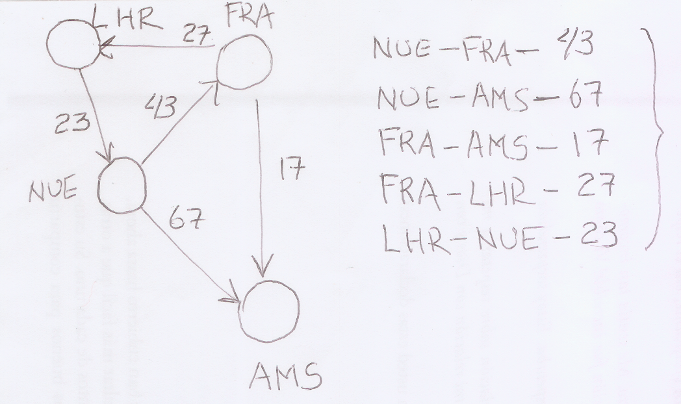 LHR
FRA
27
23
43
17
NUE
67
AMS
NUE-FRA- 43
NUE-AMS-67
FRA-AMS- 17
FRA-LHR - 27
LHR-NUE-23